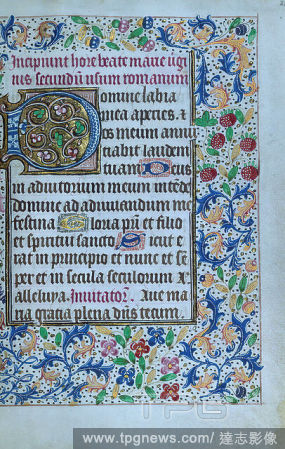 Incipiunt hore beate marie v̄gi
nis secundū usum romanum
Domine labia
mea aperies. &
os meum annū
tiabit laudem
tuam Deus
in adiutorium meum intēde
domine ad adiuvandum me
festina Gloria pr̄i et filio
et spiritui sancto Sicut e
rat in principio et nunc et sē
per et in secula seculorum
alleluya. Invitator̄. Aue ma
ria gracia plena dn̄s tecum
TPG
www.tpgnews.com/ 達志影像